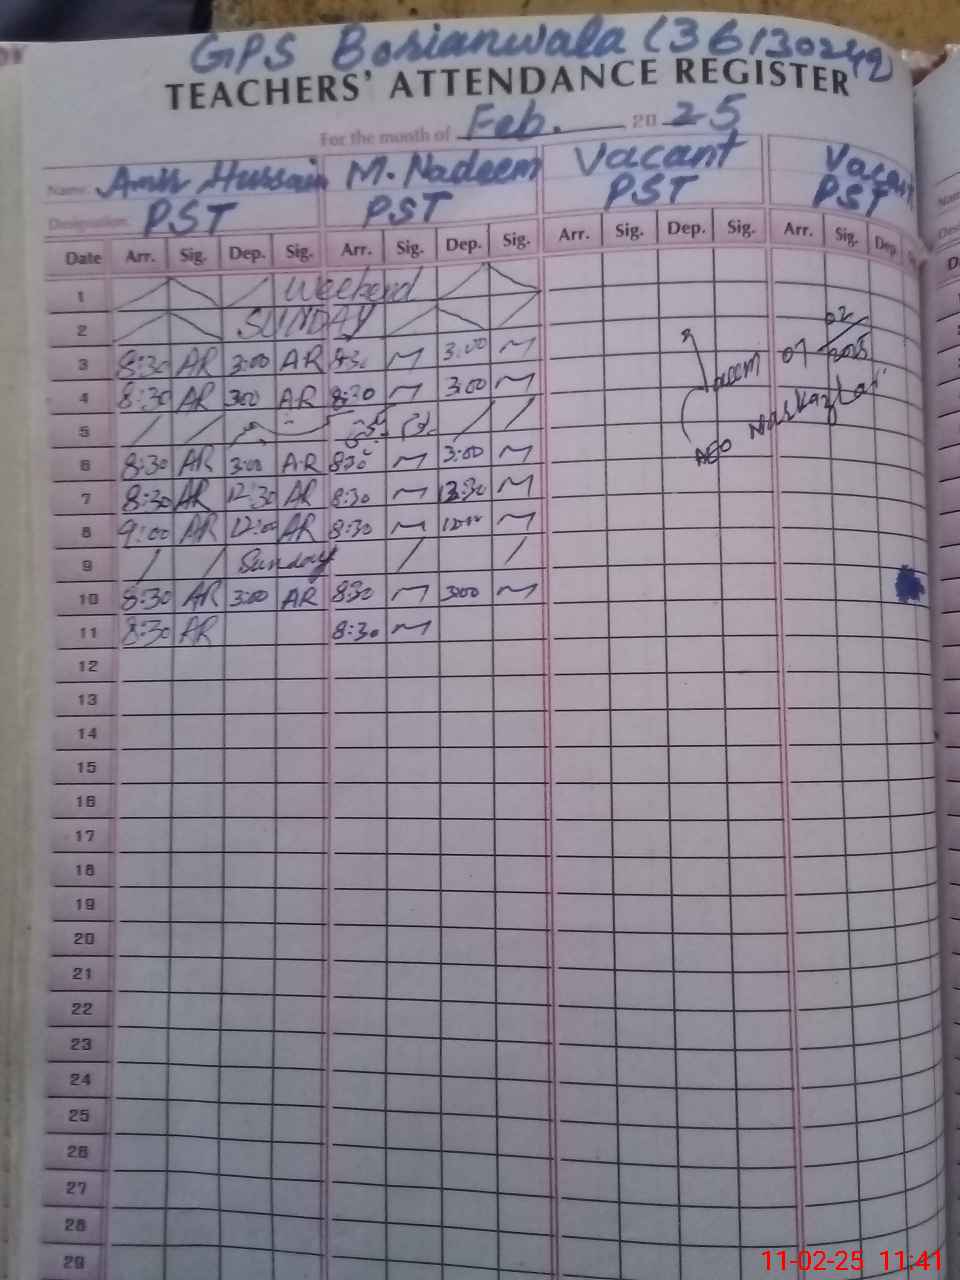 GPS Bosianwala (36130242)
TEACHERS' ATTENDANCE REGISTER
For the month of Feb. 2025
Name: Amir Hussain M. Nadeem Vacant Vacant
Designation: PST PST PST PST
Date Arr. Sig. Dep. Sig. Arr. Sig. Dep. Sig. Arr. Sig. Dep. Sig. Arr. Sig. Dep.
1 Weekend
2 SUNDAY
3 8:30 AR 3:00 AR 8:30 3:00
4 8:30 AR 3:00 AR 8:30 3:00
5
6 8:30 AR 3:00 AR 8:30 3:00
7 8:30 AR 12:30 AR 8:30 12:30
8 9:00 AR 12:00 AR 8:30 12:00
9 Sunday
10 8:30 AR 3:00 AR 8:30 3:00
11 8:30 AR 8:30
12
13
14
15
16
17
18
19
20
21
22
23
24
25
26
27
28
29
07 02 2025
AEO
11-02-25 11:41